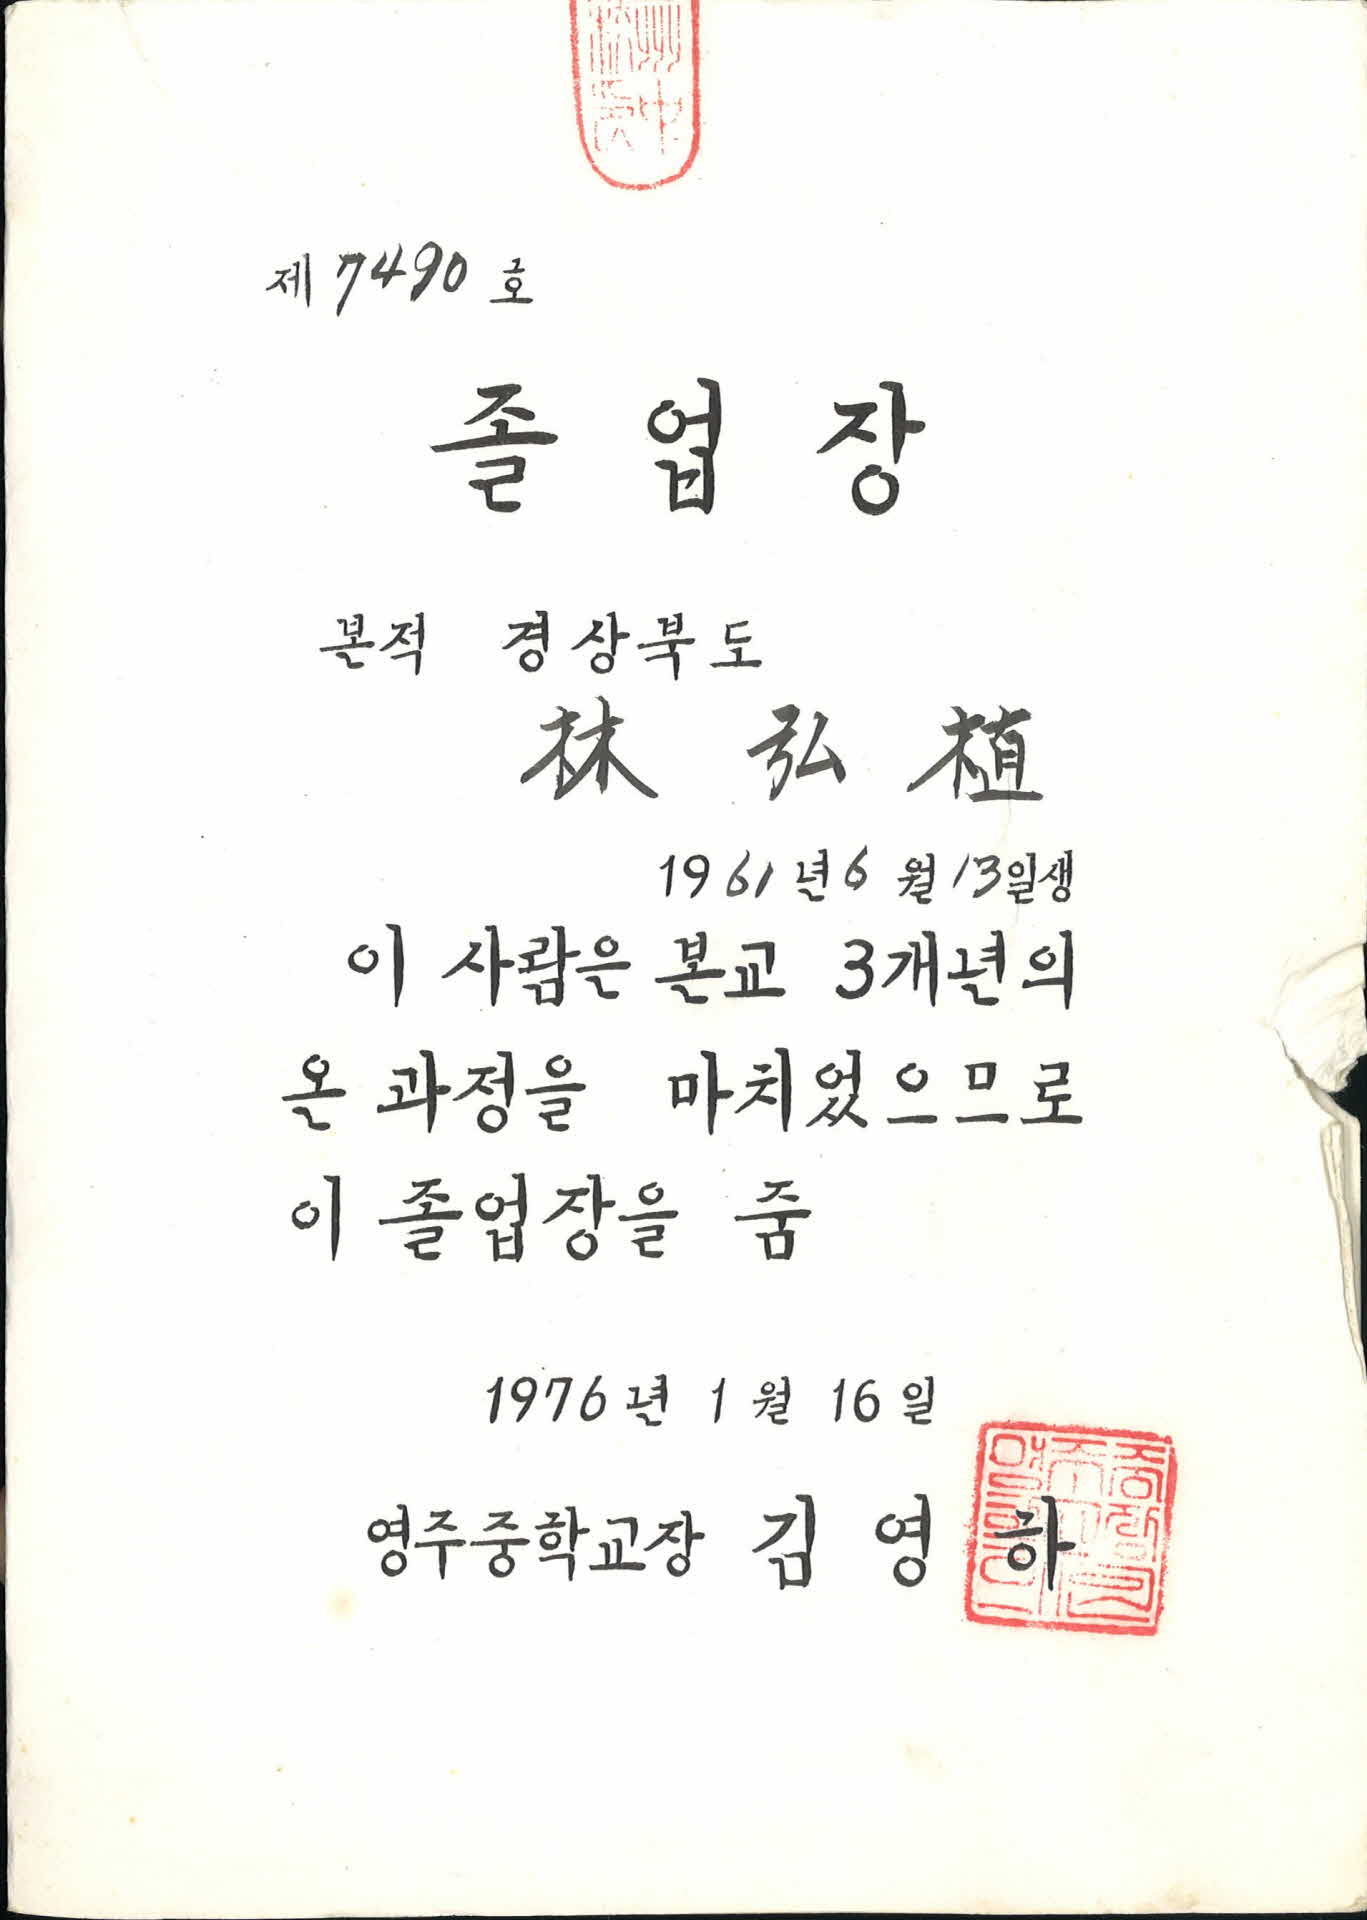 제 7490 호
졸업장
본적 경상북도
林 弘 植
1961년 6월 13일생
이 사람은 본교 3개년의
온 과정을 마치었으므로
이 졸업장을 줌
1976년 1월 16일
영주중학교장 김영하